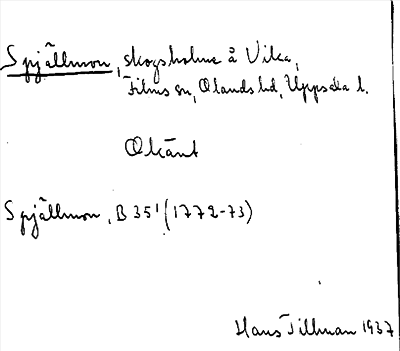 Spjällmon, skogsholme å Vika,
Films sn, Olands hd, Uppsala l.
Okänt
Spjällmon, B 35¹ (1772-73)
Hans Tillman 1937